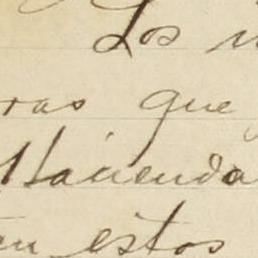 Los
ras que
Hacienda
en estos